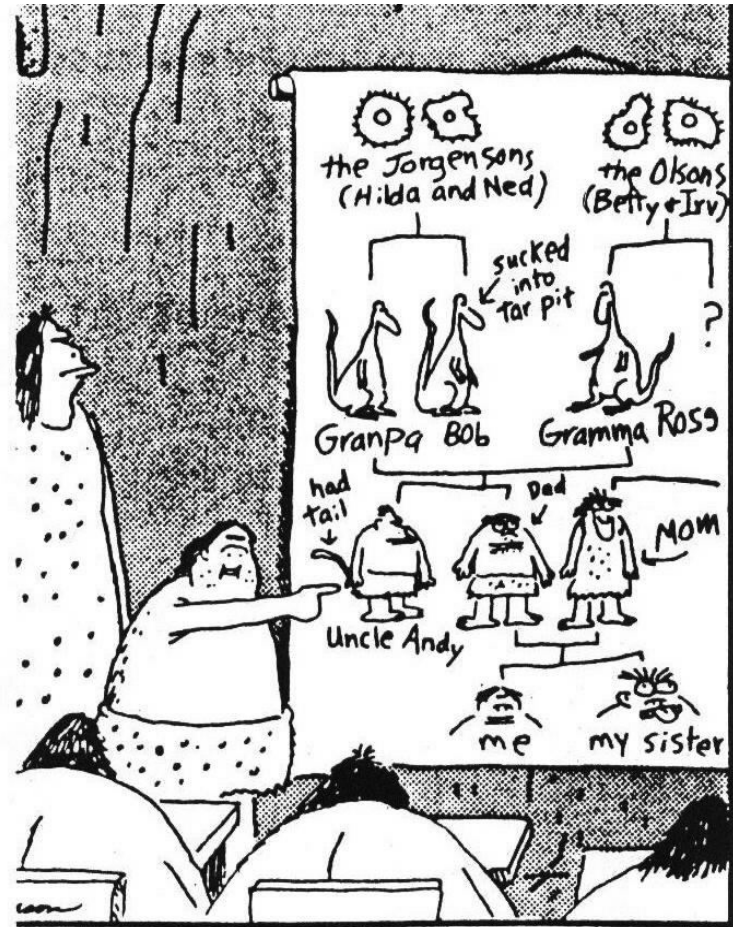 the Jorgensons
(Hilda and Ned)
the Olsons
(Betty & Irv)
sucked
into
tar pit
?
Granpa
Bob
Gramma
Ross
had
tail
Dad
Mom
Uncle Andy
me
my sister